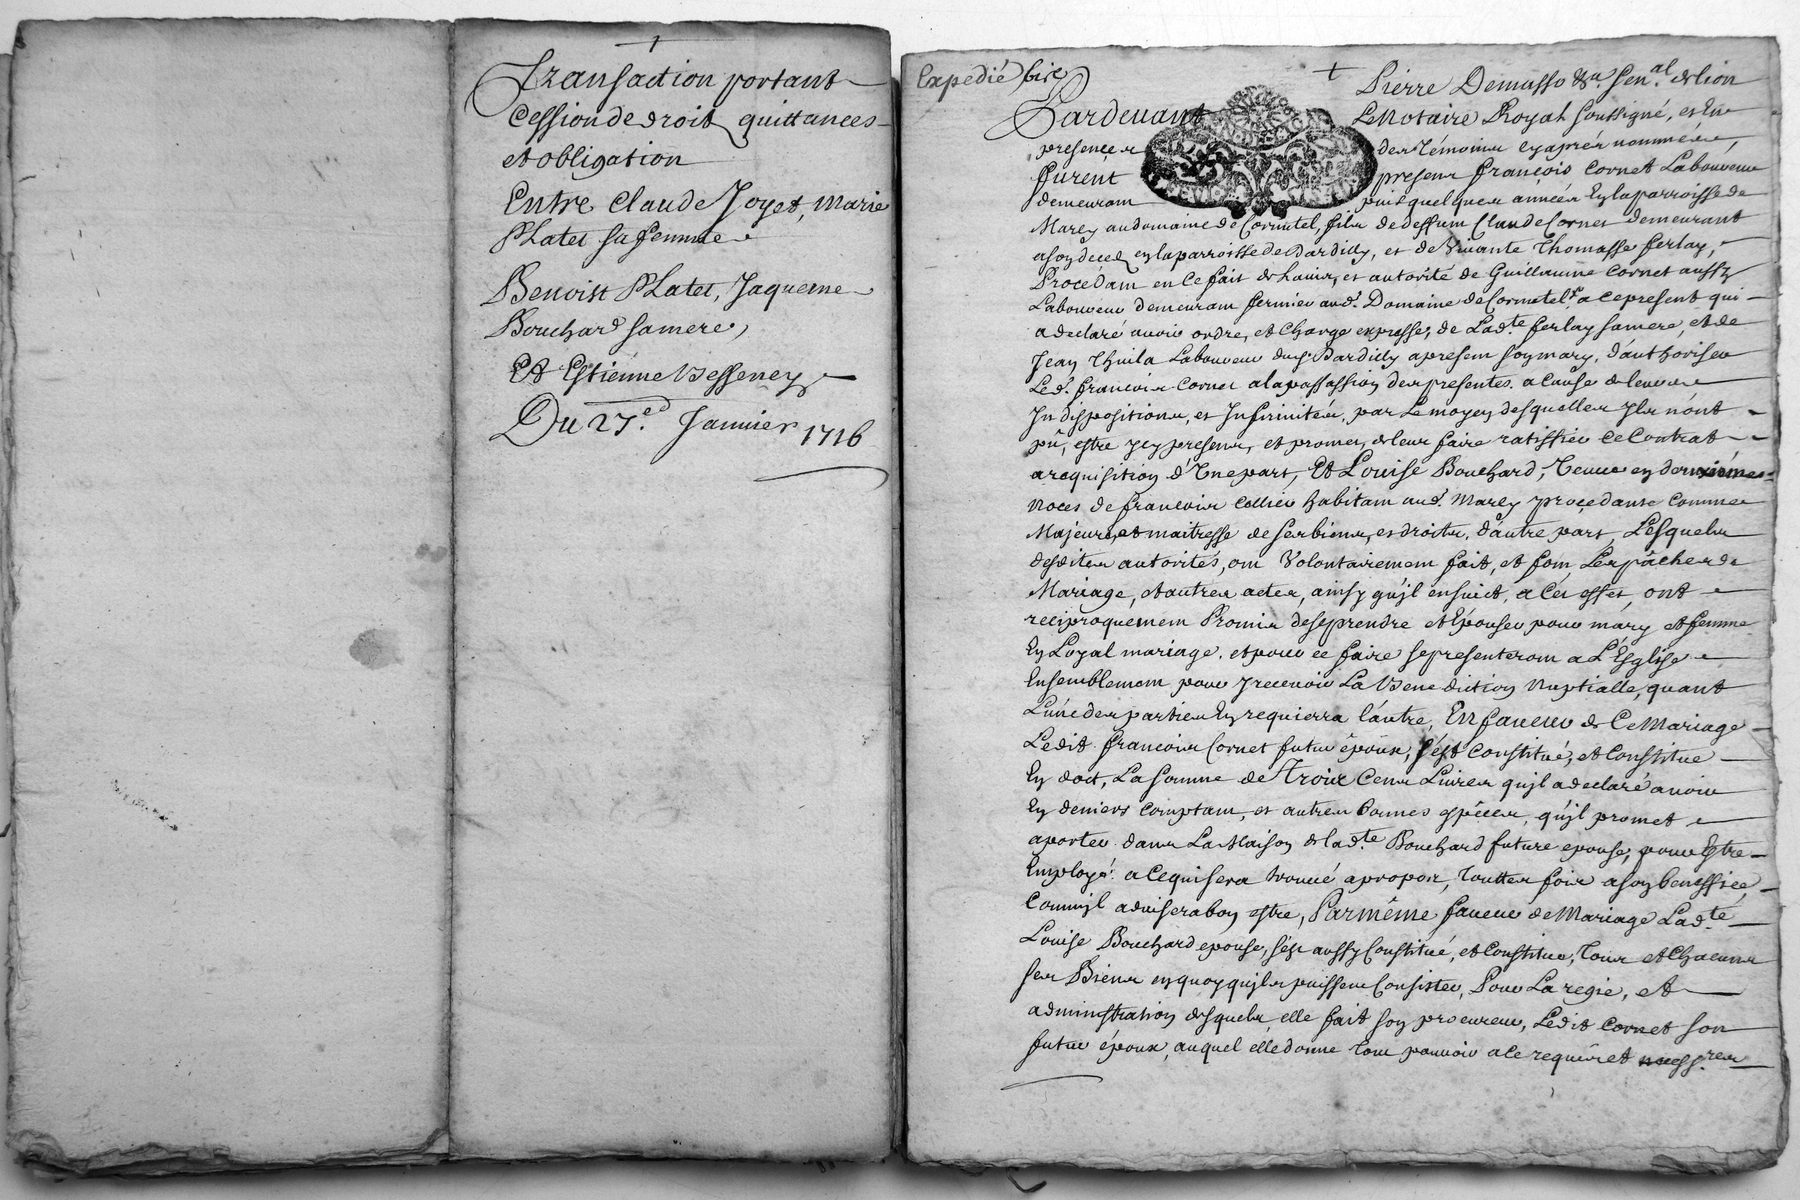 Transaction portant
Cession de droit quittances
et obligation
Entre Claude Joyet, Marie
Platet sa femme
Benoist Platet, Jaqueme
Bouchard sa mere,
Et Estienne Besseney
Du 27.e Janvier 1716
Expedié bis
Pierre Demasso &a. Sen.al de lion
Pardevant Le Notaire Royal soussigné, et En
presence des Témoins cy aprés nommés,
furent presens françois Cornet Laboureur
demeurant puis quelques années En la parroisse de
Marcy au domaine de Cornutel, fils de deffunt Claude Cornet demeurant
a son decez en la parroisse de Dardilly, et de vivante Thomasse ferlay,
Procédant en Ce fait de l'avis, et autorité de Guillaume Cornet aussy
Laboureur demeurant fermier aud.t Domaine de Cornutel, a ce present qui
a declaré avoir ordre, et Charge expresse, de Lad.te ferlay sa mere et de
Jean Thuila Laboureur dud.t Dardilly a present son mary, d'authoriser
Led.t francois Cornet a la passassion des presentes. a Cause de leurs
Indispositions, et Infirmités, par Le moyen desquelles Ils n'ont
pû, estre Icy presens, et promet, de leur faire ratiffier Ce Contrat
a requisition d'Une part, Et Louise Bouchard, Veuve en deuxiémes
noces de francois Collier habitant aud.t Marcy procedante Comme
Majeure, et maitresse de ses biens, et droits, d'autre part, Lesquels
desdites autorités, ont Volontairement fait, et font, Les pâches de
Mariage, et autres actes, ainsy qu'jl ensuict, a Cet effet, ont
reciproquement Promis de se prendre et Épouser pour mary et femme
En Loyal mariage. et pour ce faire se presenteront a L'Esglise
Ensemblement pour y recevoir La Benediction Nuptialle, quant
L'une des parties En requierra l'autre, En faveur de Ce Mariage
Ledit francois Cornet futur époux, s'ést Constitué, et Constitue
En dot, La somme de Trois Cens Livres qu'jl a declaré avoir
En deniers Comptant, et autres bonnes espéces, qu'jl promet
aporter dans La Maison de lad.te Bouchard future epouse, pour Estre
Employé a Ce qui sera trouvé a propos, Touttes fois a son benefficé
Comm'jl advisera bon estre, Par même faveur de Mariage Lad.te
Louise Bouchard epouse, s'ést aussy Constitué, et Constitue, Tous et Chacuns
ses Biens en quoy qu'jls puissent Consister, Pour La regie, et
administration desquels, elle fait son procureur, Ledit Cornet son
futur époux, auquel elle donne tout pouvoir a Ce requis et necess.res